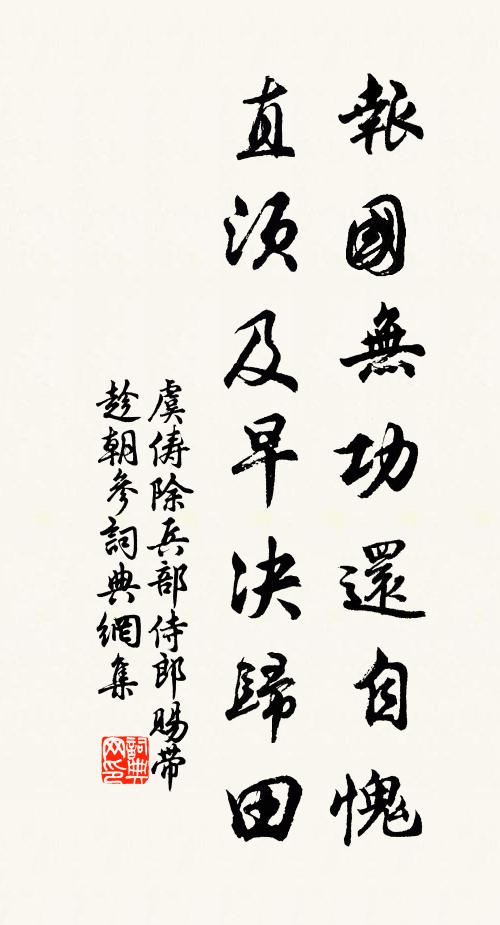 報國無功還自愧
直須及早決歸田
虞儔除兵部侍郎賜带
趁朝參詞典網集
詞典
网印